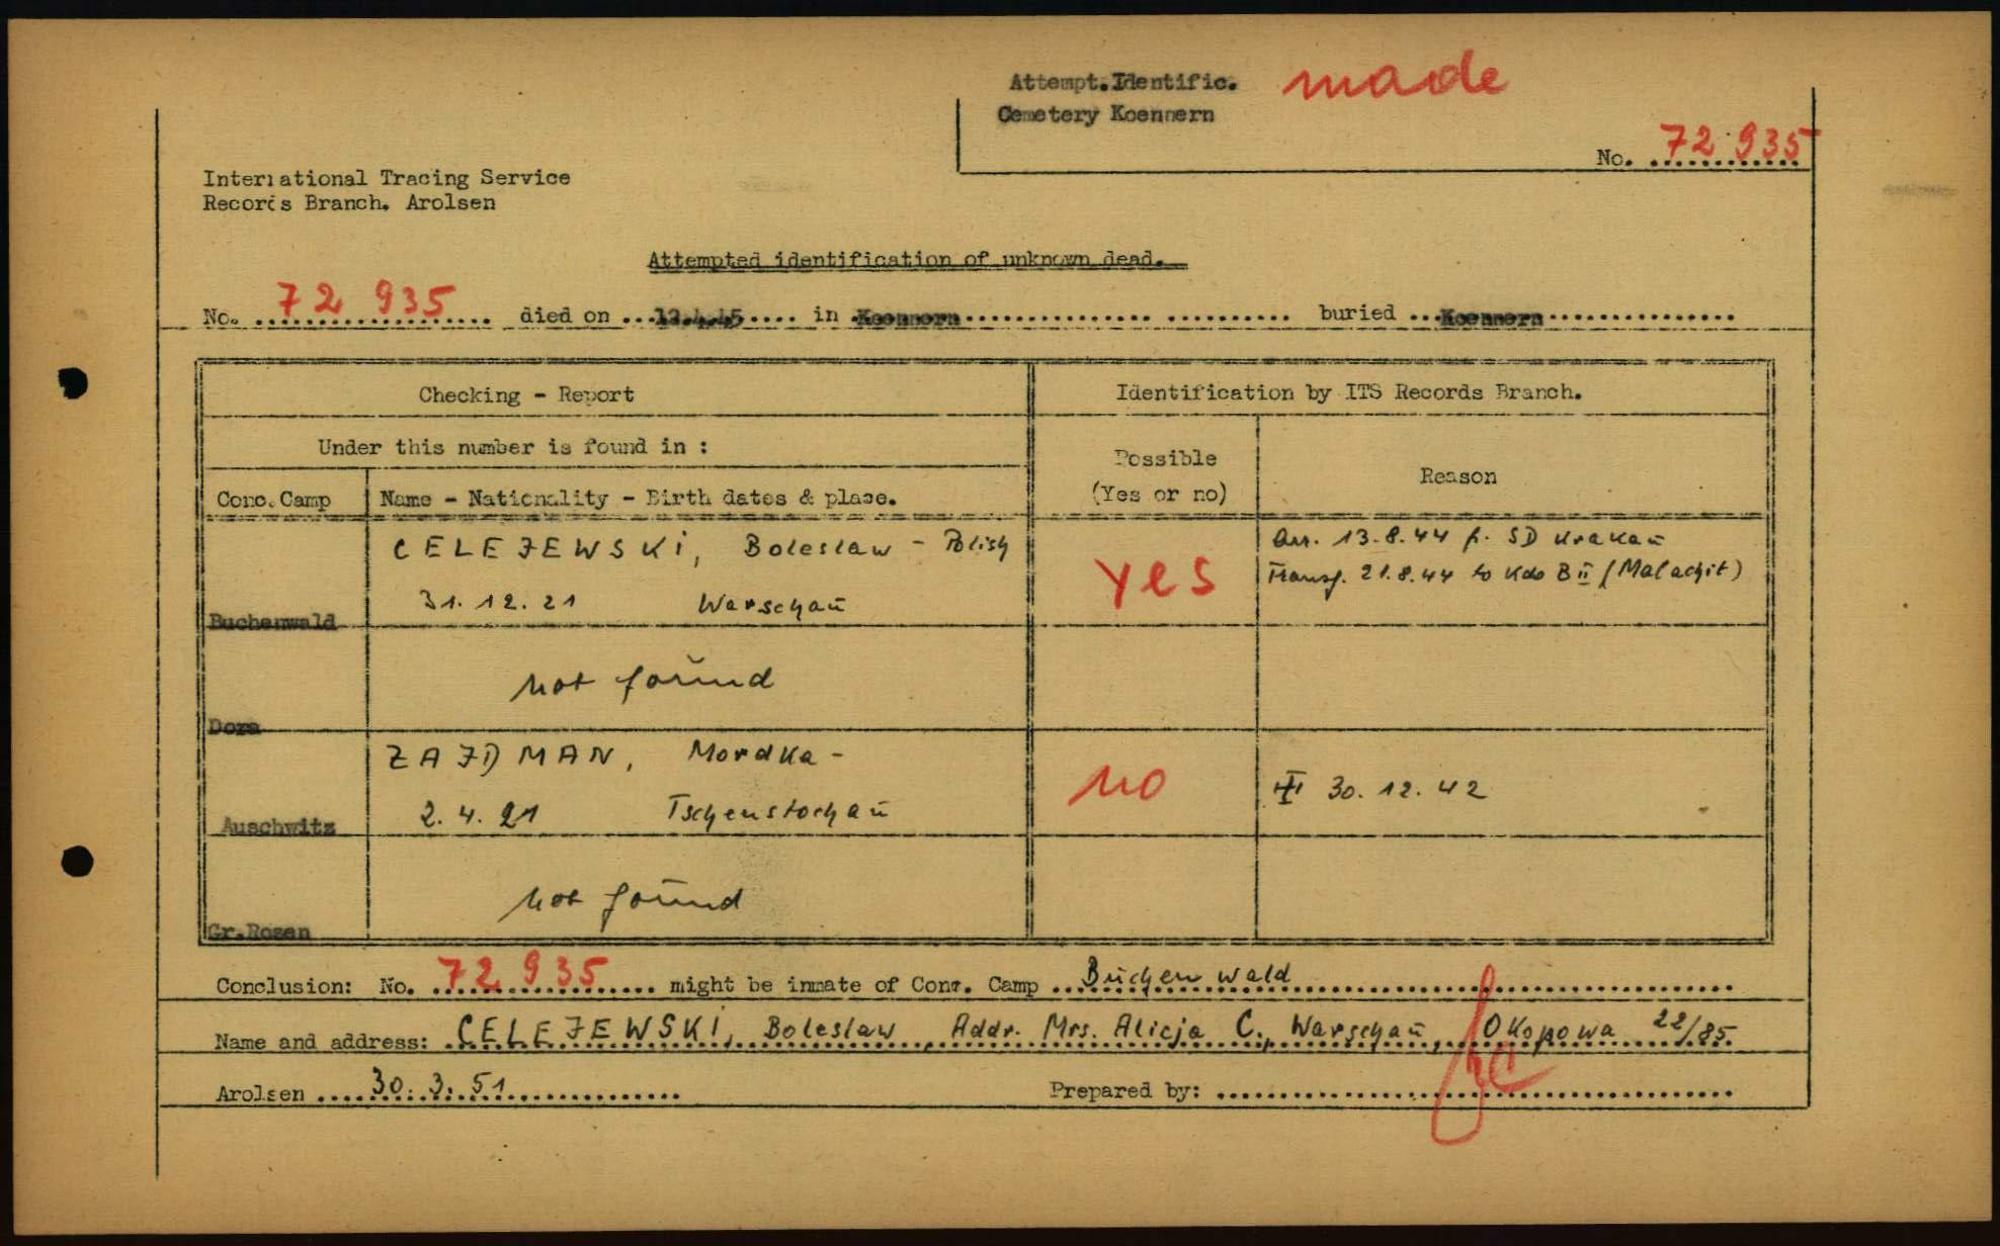 Attempt.Identific. made
Cemetery Koennern
No. 72 935
International Tracing Service
Records Branch. Arolsen
Attempted identification of unknown dead.
No. 72 935 died on 12.4.45 in Koennern buried Koennern
Checking - Report Identification by ITS Records Branch.
Under this number is found in :
Possible
(Yes or no)
Reason
Conc.Camp Name - Nationality - Birth dates & place.
CELEJEWSKI, Boleslaw - Polish
31.12.21 Warschau
Buchenwald
yes
Arr. 13.8.44 f. SD Krakau
Transf. 21.8.44 to Kdo B II (Malachit)
not found
Dora
ZAJDMAN, Mordka -
2.4.21 Tschenstochau
Auschwitz
no
30.12.42
not found
Gr.Rosen
Conclusion: No. 72 935 might be inmate of Conc. Camp Buchenwald
Name and address: CELEJEWSKI, Boleslaw, Addr. Mrs. Alicja C., Warschau, Okopowa 22/85.
Arolsen 30.3.51 Prepared by: